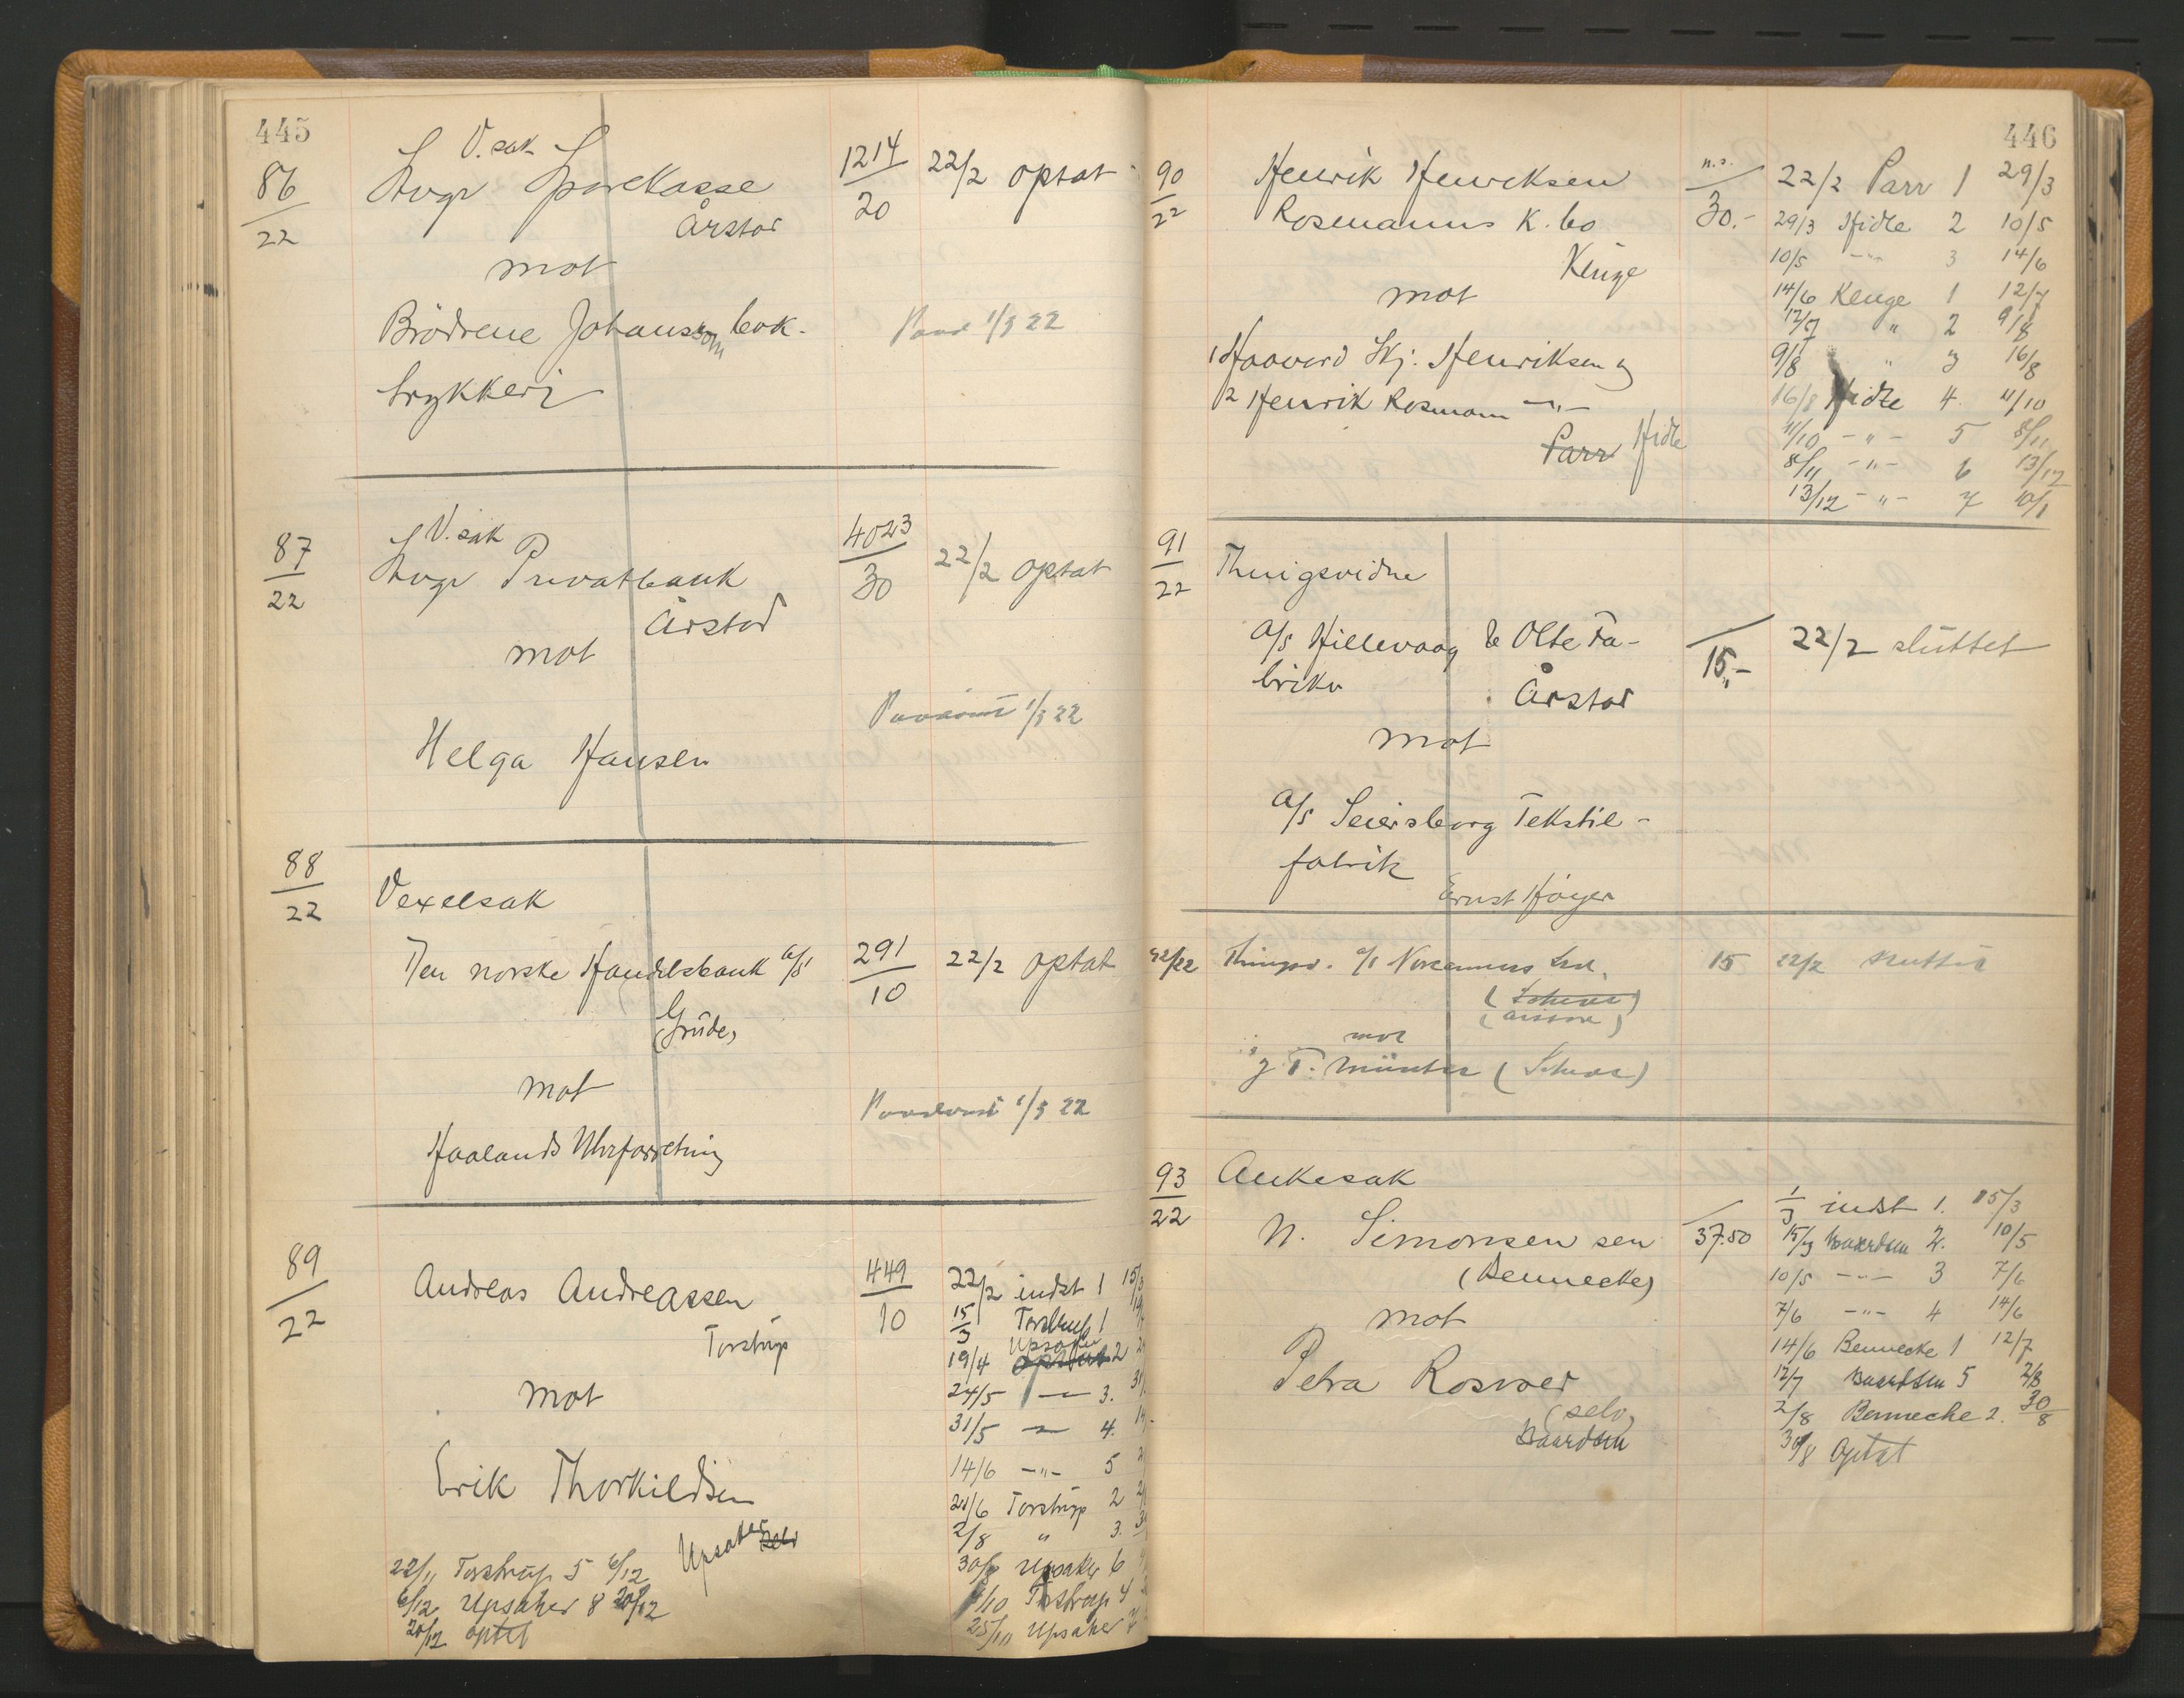 445
86
22
V. sak
Svgr Sparekasse
Årstad
mot
Brödrene Johansson bok-
trykkeri
1214
20
22/2 optat
1/3 22
87
22
V. sak
Svgr Privatbank
Årstad
mot
Helga Hansen
4023
30
22/2 optat
1/3 22
88
22
Vexelsak
Den norske Handelsbank a/s
Grude
mot
Haalands Uhrforretning
291
10
22/2 optat
1/3 22
89
22
Andreas Andreassen
Torstrup
mot
Erik Thorkildsen
Upsaker Selv
449
10
22/2 indst 1 15/3
15/3 Torstrup 1
19/4 Upsaker optat 2
24/5 -"- 3.
31/5 -"- 4.
14/6 -"- 5
21/6 Torstrup 2
2/8 " 3.
30/8 Upsaker 6
4/10 Torstrup 4
25/10 Upsaker 7
22/11 Torstrup 5 6/12
6/12 Upsaker 8 20/12
20/12 optat
446
90
22
Henrik Henriksen
Rosemanns K. bo
Kenge
mot
1 Haavard Skj. Henriksen og
2 Henrik Rosmann -"-
Parr Hidle
n.s.
30.-
22/2 Parr 1 29/3
29/3 Hidle 2 10/5
10/5 -"- 3 14/6
14/6 Kenge 1 12/7
12/7 " 2 9/8
9/8 " 3 16/8
16/8 Hidle 4. 11/10
11/10 -"- 5 8/11
8/11 -"- 6 13/12
13/12 -"- 7 10/1
91
22
Thingsvidne
a/s Hillevaag & Olte Fa-
briker
Årstad
mot
a/s Seiersborg Tekstil-
fabrik
Ernst Höyer
15,-
22/2 sluttet
92/22 Thingsv. a/s
mot
J. T. Münter (
15 22/2 sluttet
93
22
Ankesak
N. Simonsen sen
(Bennecke)
mot
Petra Rosvær
(selv)
Baardsen
37.50
1/3 indst 1. 15/3
15/3 Baardsen 2. 10/5
10/5 -"- 3 7/6
7/6 -"- 4 14/6
14/6 Bennecke 1 12/7
12/7 Baardsen 5 2/8
2/8 Bennecke 2. 30/8
30/8 Optat